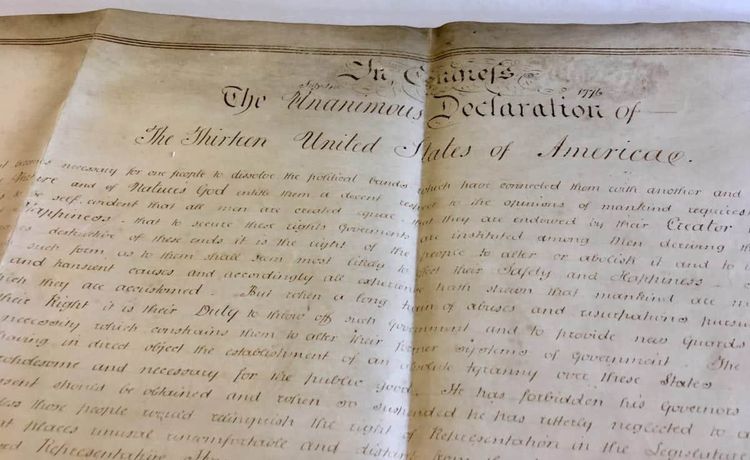 In Congress
1776
The Unanimous Declaration of
The Thirteen United States of America.
becomes necessary for one people to dissolve the political bands which have connected them with another and
and of Nature's God entitle them a decent respect to the opinions of mankind requires
to be self evident that all men are created equal that they are endowed by their Creator
Happiness - that to secure these rights Governments are instituted among Men deriving
destructive of these ends it is the right of the people to alter or abolish it and to
such form, as to them shall seem most likely to effect their Safety and Happiness
and transient causes and accordingly all experience hath shewn that mankind are
which they are accustomed - But when a long train of abuses and usurpations
their Right it is their Duty to throw off such Government and to provide new Guards
necessity which constrains them to alter their former Systems of Government The
having in direct object the establishment of an absolute tyranny over these States
wholesome and necessary for the public good. He has forbidden his Governors
should be obtained and when so suspended he has utterly neglected to
those people would relinquish the right of Representation in the Legislature
at places unusual uncomfortable and distant from
Representative